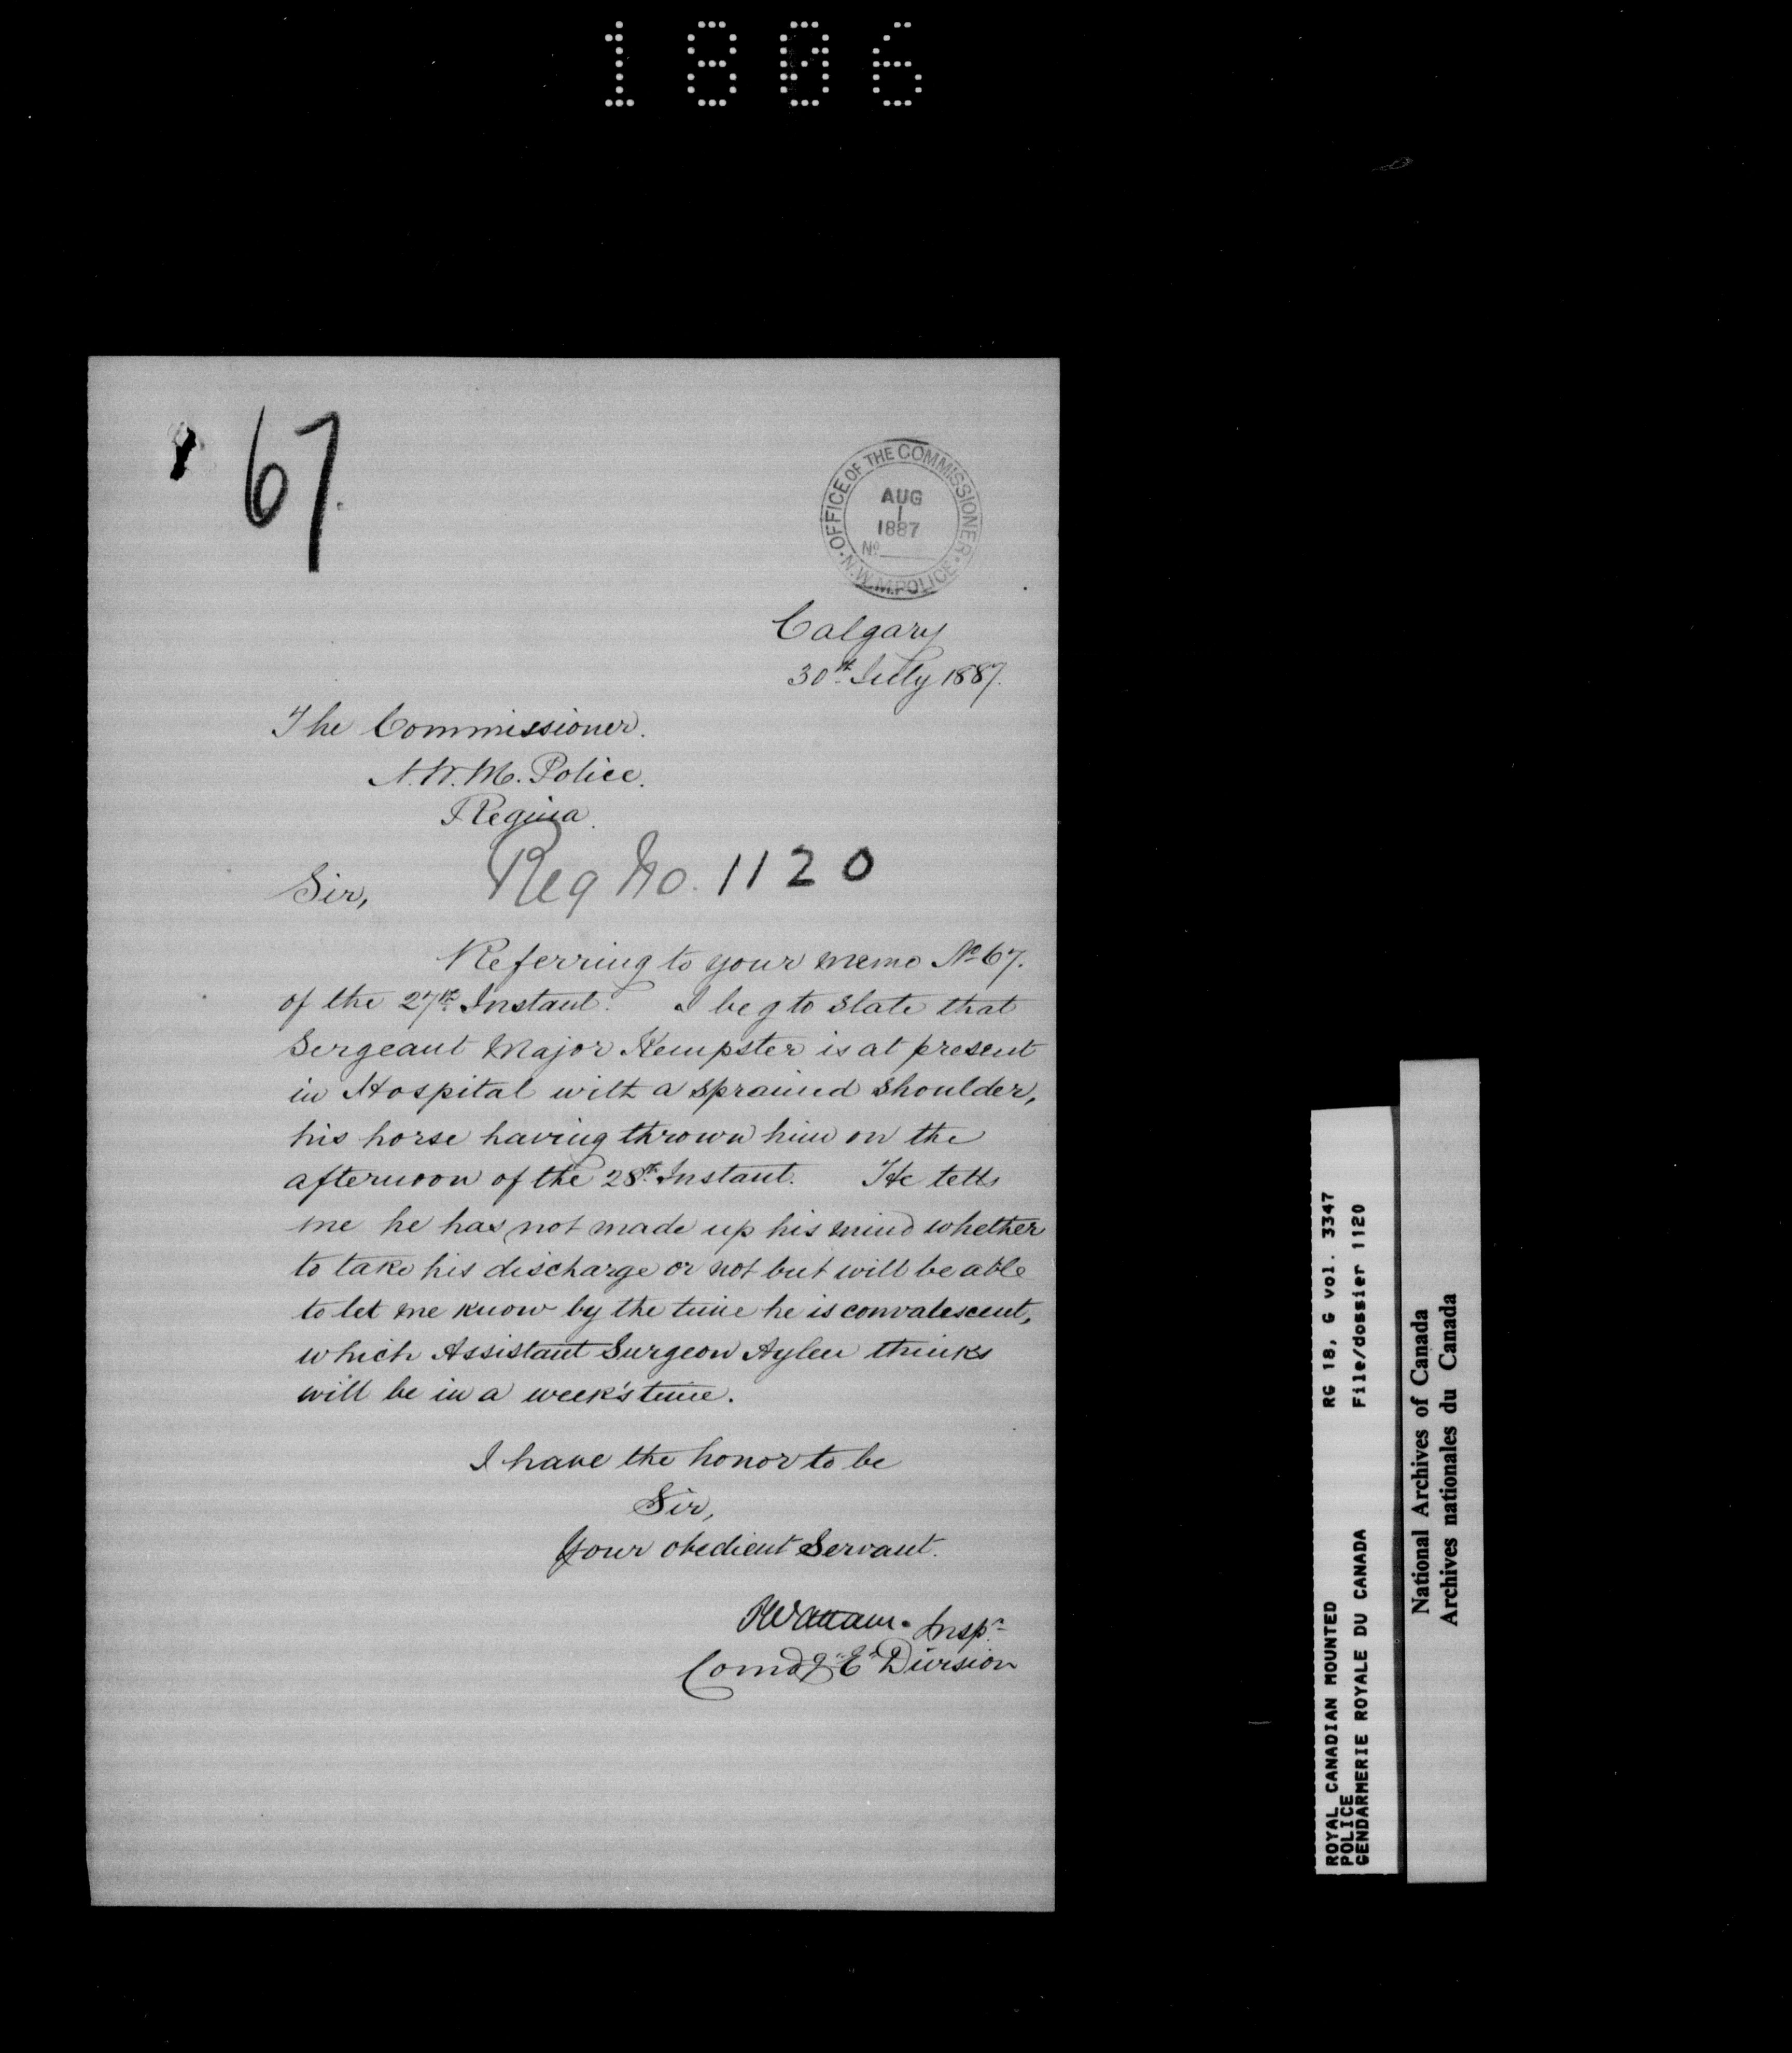 1806
67.
OFFICE OF THE COMMISSIONER
AUG
1
1887
No
N.W.M. POLICE
Calgary
30th July 1887.
The Commissioner.
N.W.M. Police.
Regina.
Reg No. 1120
Sir,
Referring to your memo No 67.
of the 27th Instant. I beg to state that
Sergeant Major Kempster is at present
in Hospital with a sprained shoulder,
his horse having thrown him on the
afternoon of the 28th Instant. He tells
me he has not made up his mind whether
to take his discharge or not but will be able
to let me know by the time he is convalescent,
which Assistant Surgeon Aylen thinks
will be in a week's time.
I have the honor to be
Sir,
Your obedient Servant.
Inspr
Comdg "E" Division
ROYAL CANADIAN MOUNTED
POLICE
GENDARMERIE ROYALE DU CANADA
RG 18, G vol. 3347
File/dossier 1120
National Archives of Canada
Archives nationales du Canada